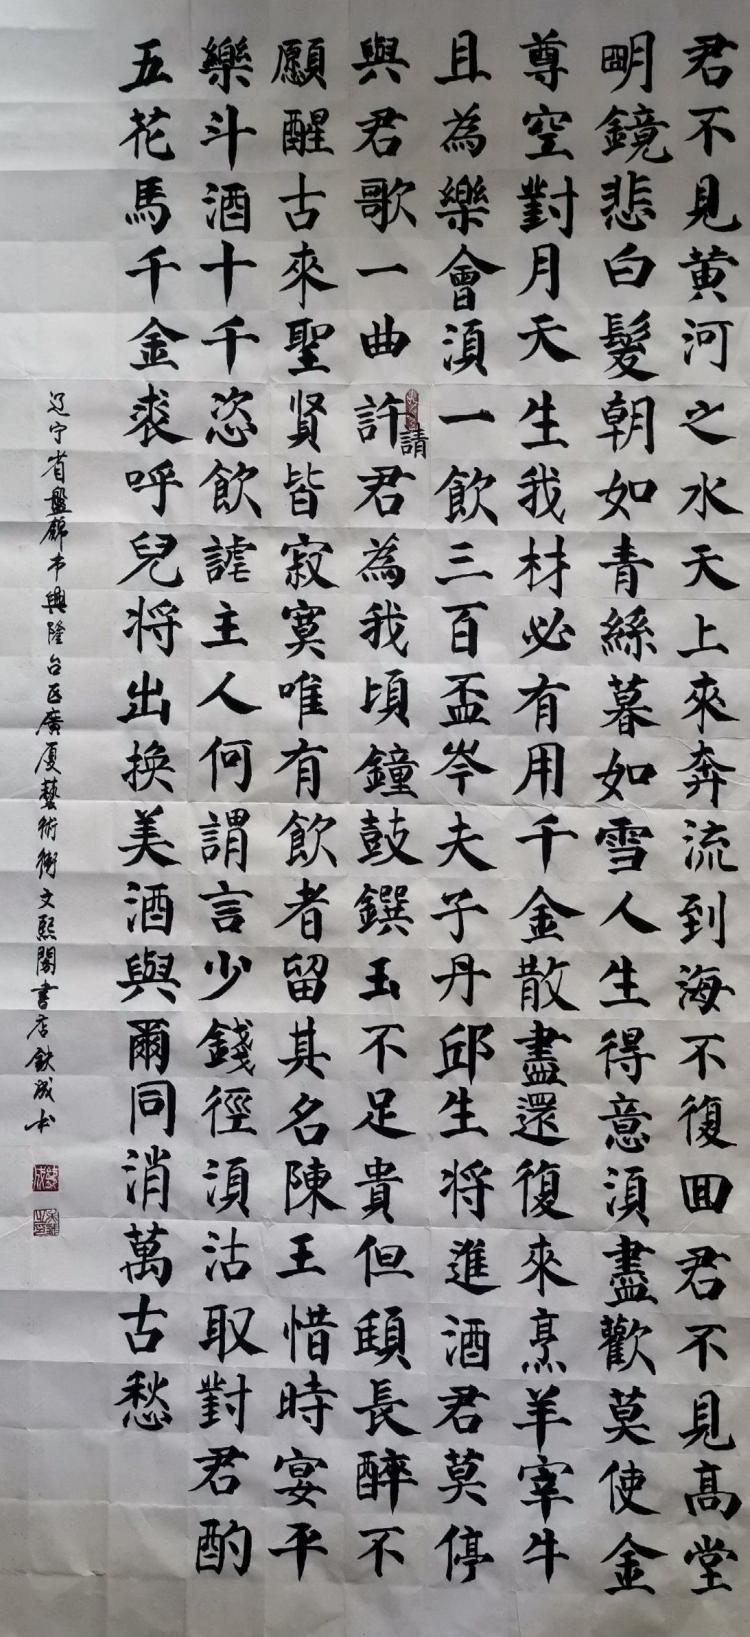 君不見黄河之水天上來奔流到海不復囬君不見高堂
明鏡悲白髮朝如青絲暮如雪人生得意湏盡歡莫使金
尊空對月天生我材必有用千金散盡還復來烹羊宰牛
且為樂會湏一飲三百盃岑夫子丹邱生将進酒君莫停
請
與君歌一曲許君為我頃鐘鼓饌玉不足貴但頤長醉不
願醒古來聖賢皆寂寞唯有飲者留其名陳王惜時宴平
樂斗酒十千恣飲謔主人何謂言少錢徑湏沽取對君酌
五花馬千金裘呼兒将出換美酒與爾同消萬古愁
辽宁省盤錦市興隆台区廣厦藝術街文熙閣書店鉄成书